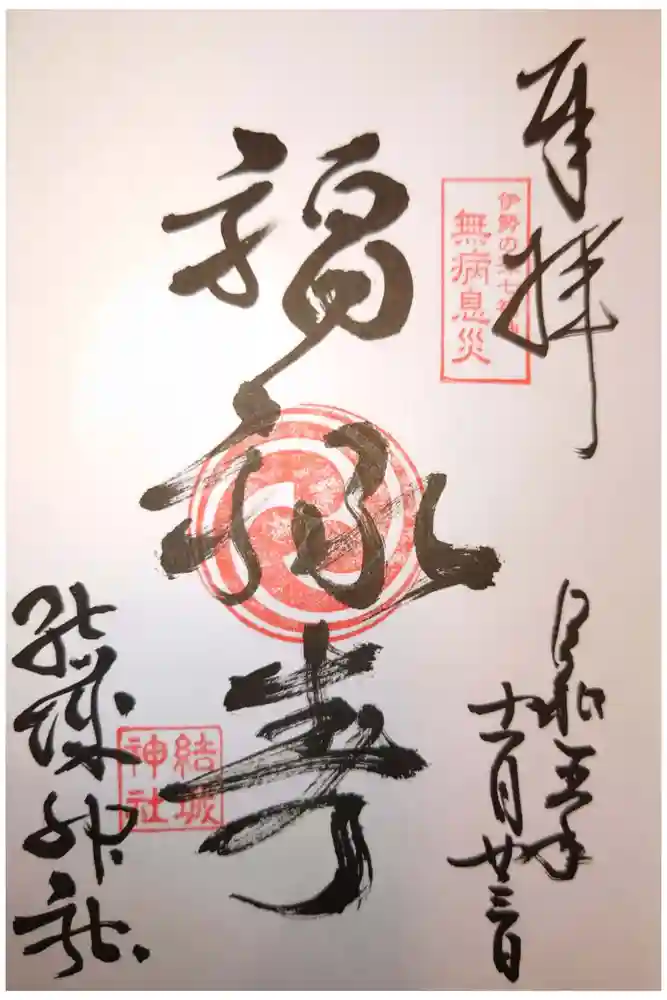 奉拝
伊勢の津七福神
無病息災
福禄寿
令和五年
十一月廿三日
結城神社
結城
神社